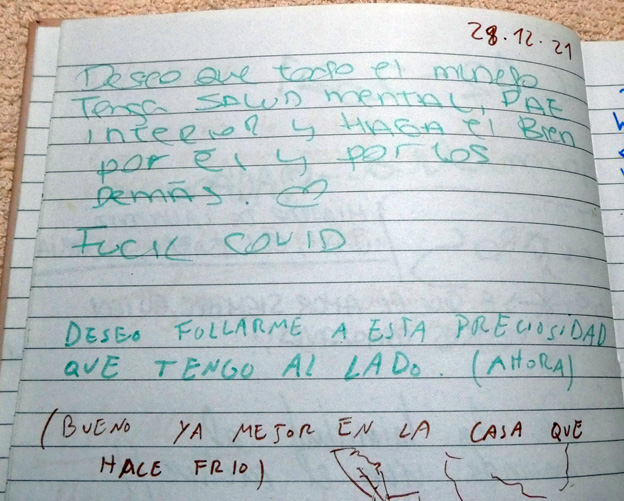 28.12.21
Deseo que todo el mundo
Tenga SALUD mental, PAZ
interior y HAGA el Bien
por él y por los
Demás.
FUCK COVID
DESEO FOLLARME A ESTA PRECIOSIDAD
QUE TENGO AL LADO. (AHORA)
(BUENO YA MEJOR EN LA CASA QUE
HACE FRIO)